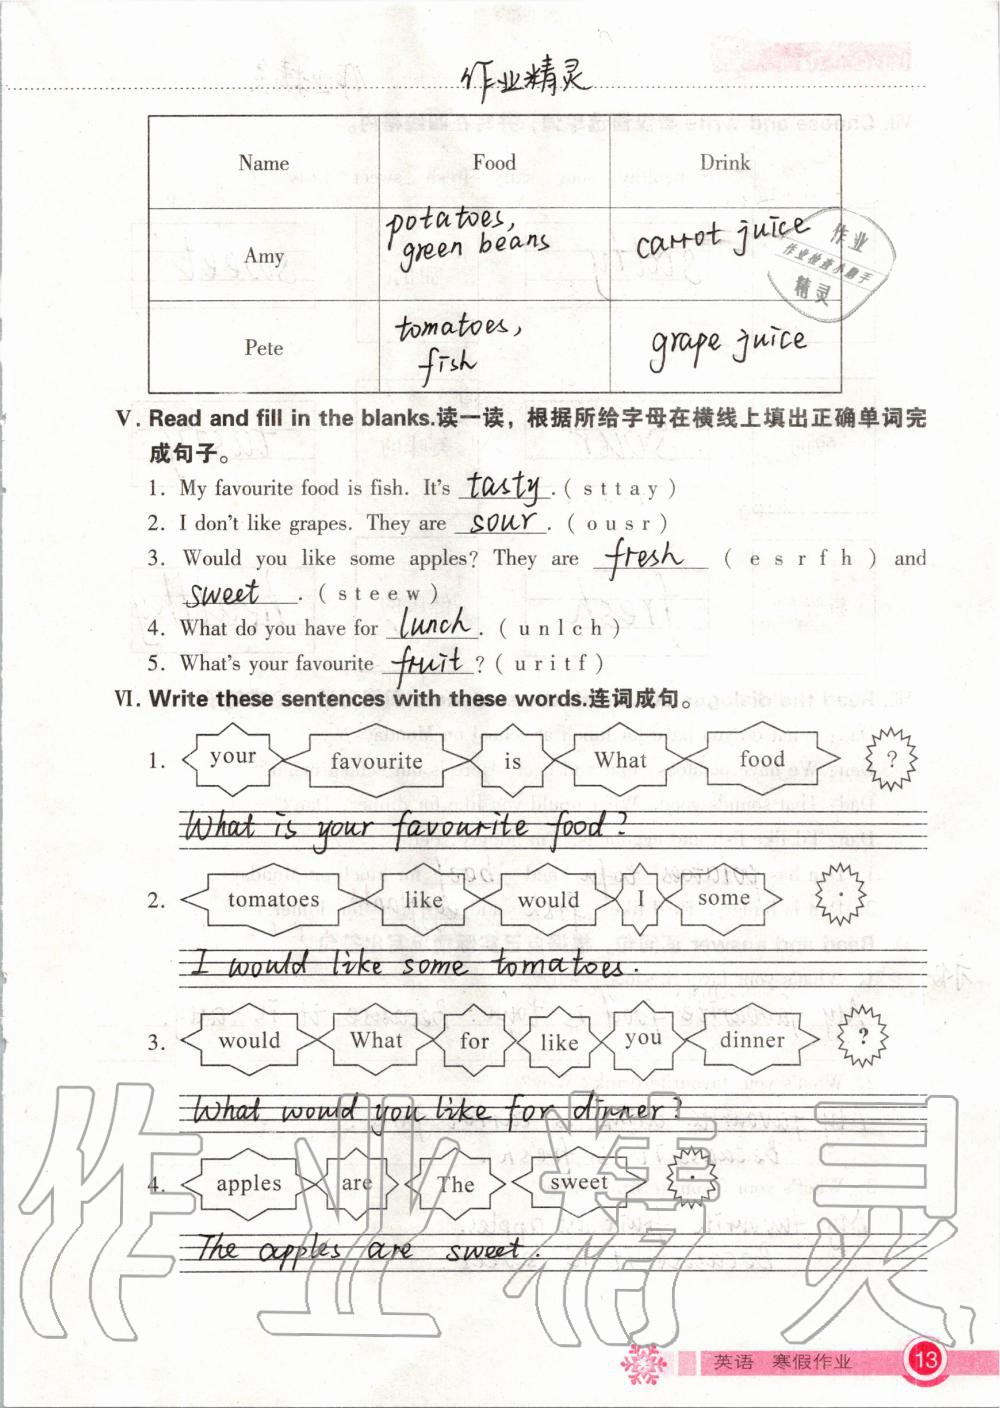 作业精灵
Name Food Drink
Amy potatoes, green beans carrot juice
Pete tomatoes, fish grape juice
作业
作业检查小助手
精灵
Ⅴ. Read and fill in the blanks.读一读，根据所给字母在横线上填出正确单词完
成句子。
1. My favourite food is fish. It's tasty.(sttay)
2. I don't like grapes. They are sour.(ousr)
3. Would you like some apples? They are fresh (esrfh) and
sweet.(steew)
4. What do you have for lunch.(unlch)
5. What's your favourite fruit?(uritf)
Ⅵ. Write these sentences with these words.连词成句。
1. your favourite is What food ?
What is your favourite food?
2. tomatoes like would I some .
I would like some tomatoes.
3. would What for like you dinner ?
What would you like for dinner?
4. apples are The sweet .
The apples are sweet.
作业精灵
英语 寒假作业 13